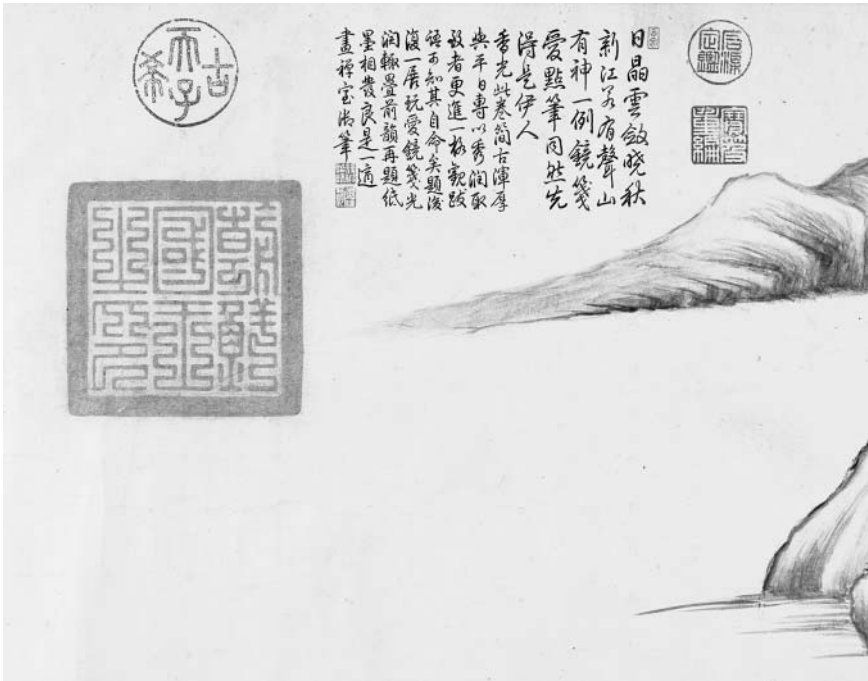 石渠定鑑
寶笈重編
日晶雲斂曉秋
新江若有聲山
有神一例鏡箋
愛點筆同然先
得是伊人
香光此卷簡古渾厚
與平日專以秀潤取
致者更進一格觀跋
語可知其自命矣題後
復一展玩愛鏡箋光
潤輒疊前韻再題紙
墨相發良是一適
畫禪室御筆
古希天子
朝鮮國王之印